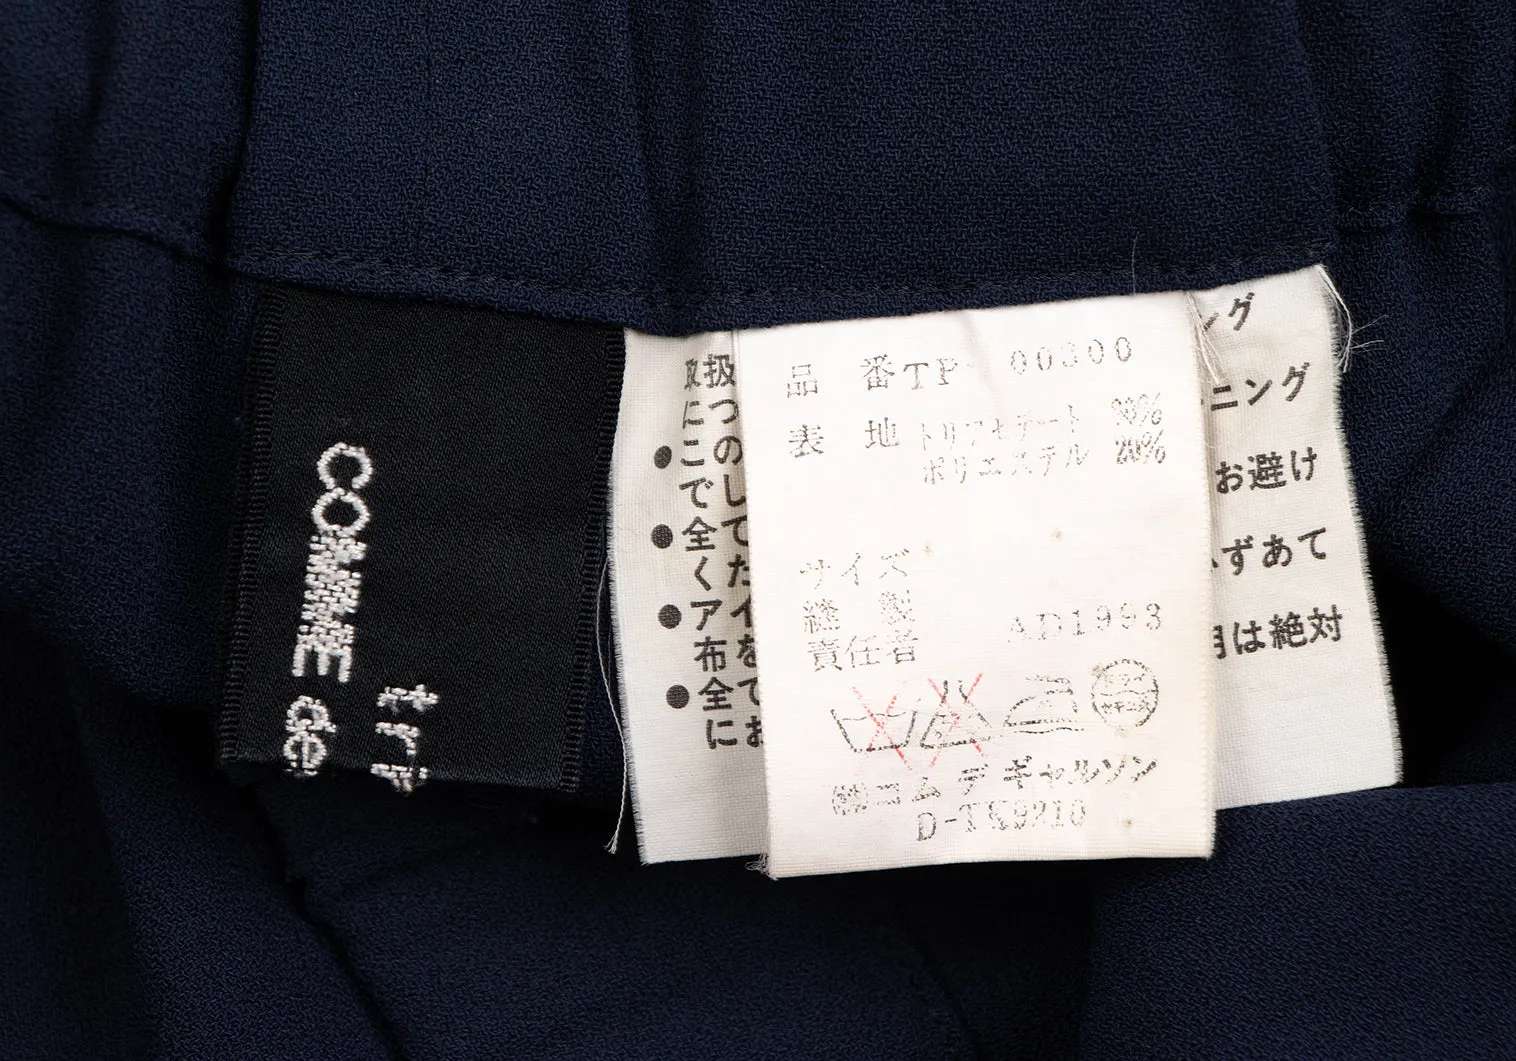 COMME de
tri
取扱
につ
●この
でし
●全て
くた
●アイ
布を
●全て
にお
品 番 TP 00300
表 地 トリアセテート
ポリエステル 20%
サイズ
縫 製
責任者
AD1993
セキユ系
㈱コム デ ギャルソン
ング
ニング
お避け
ずあて
は絶対